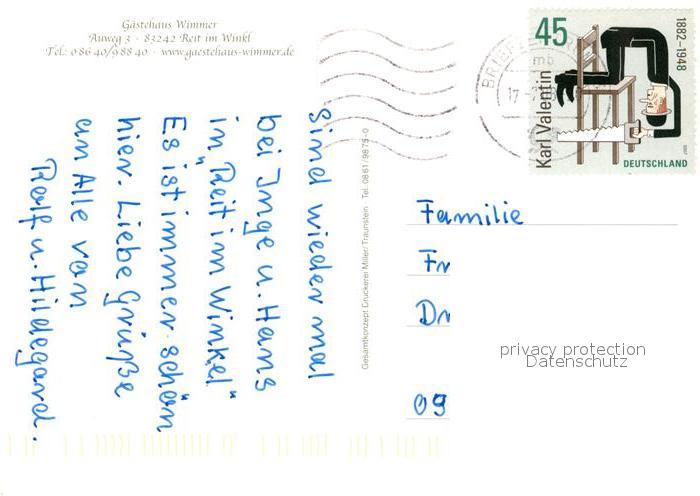 Gästehaus Wimmer
Auweg 3 · 83242 Reit im Winkl
Tel.: 0 86 40/9 88 40 · www.gaestehaus-wimmer.de
Sind wieder mal
bei Inge u. Hans
in „Reit im Winkel“
Es ist immer schön
hier. Liebe Grüße
an Alle von
Rolf u. Hildegard.
Gesamtkonzept Druckerei Miller/Traunstein Tel. 0861/9875-0
45
Karl Valentin
1882-1948
DEUTSCHLAND
Familie
Fr
Dr
09
privacy protection
Datenschutz